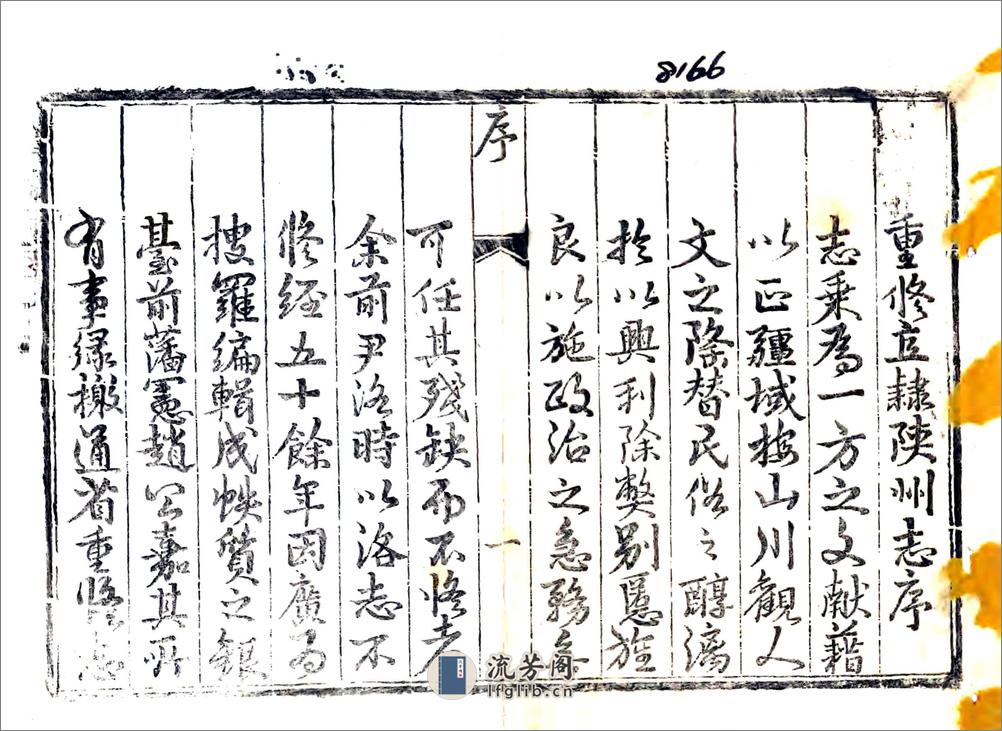 8166
重修直隸陝州志序
志乘為一方之文獻藉
以正疆域按山川觀人
文之隆替民俗之醇漓
於以興利除弊別慝旌
良以施政治之急務無
序
一
可任其殘缺而不修者
余前尹洛時以洛志不
修經五十餘年因廣為
搜羅編輯成帙質之銀
臺前藩憲趙公嘉其所
有事緣檄通省重修志
流芳阁
lfglib.cn